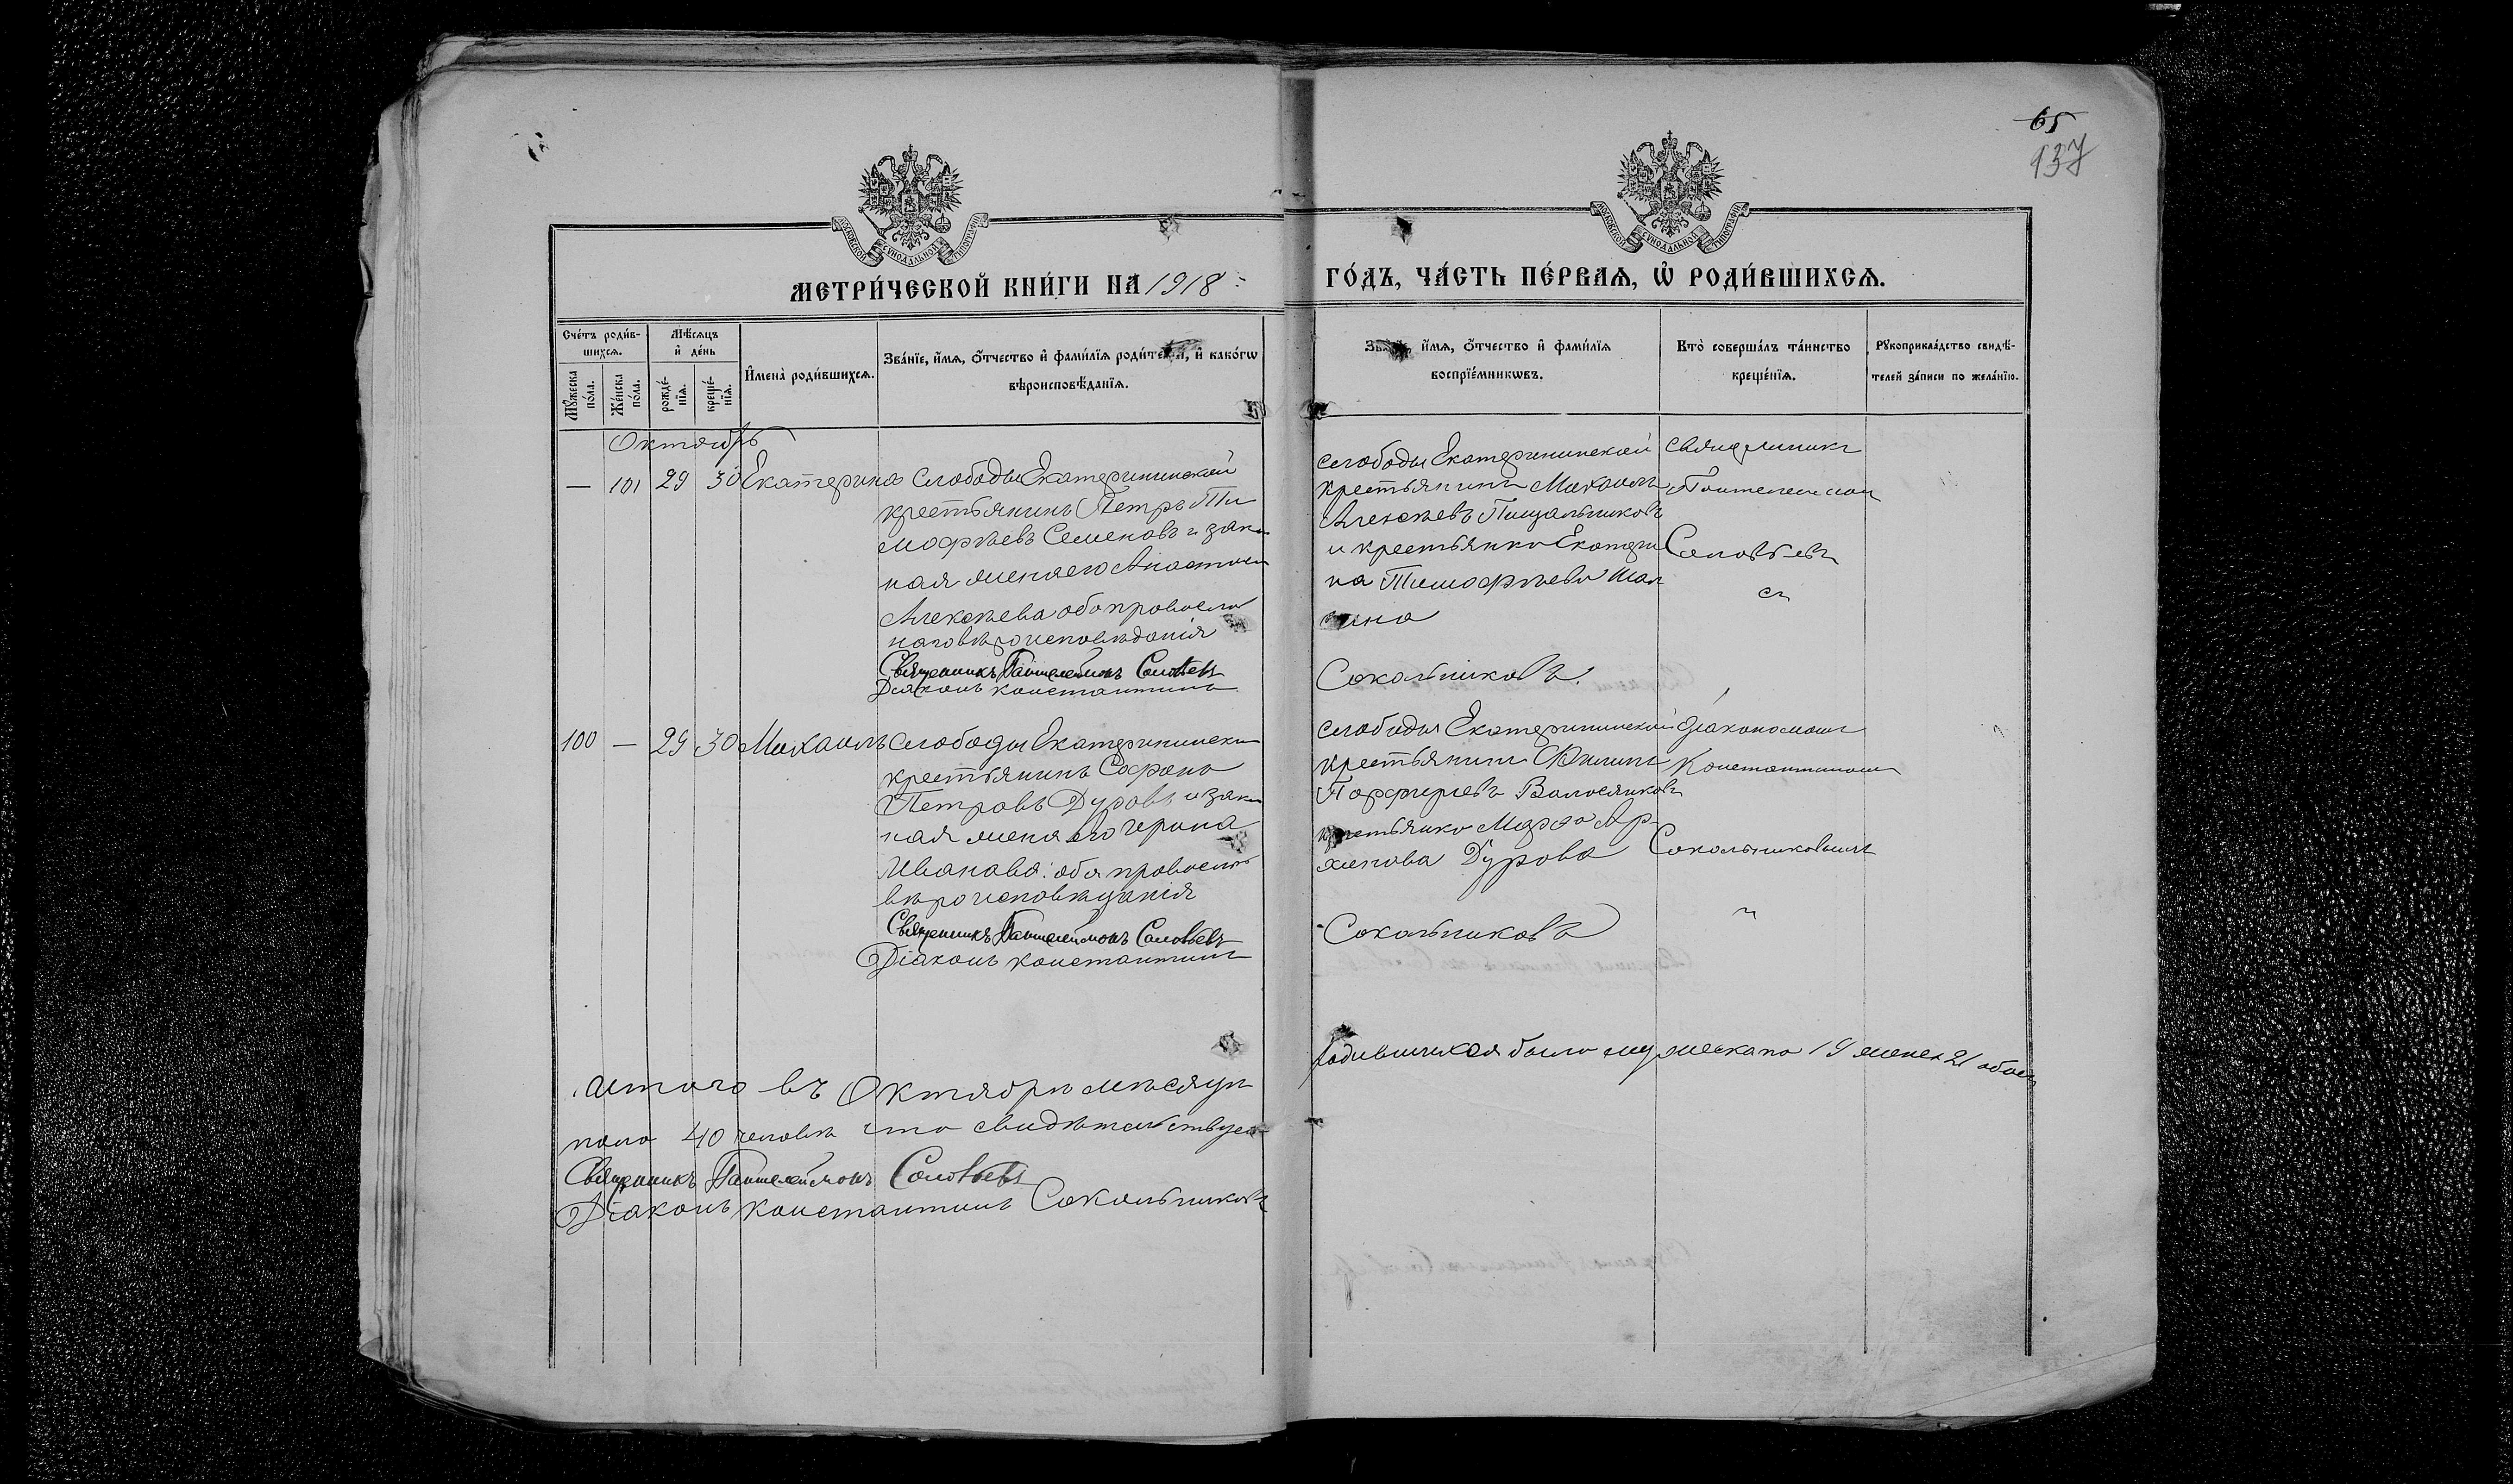 65
137
МОСКОВСКОЙ СѴНОДАЛЬНОЙ ТИПОГРАФІИ
МОСКОВСКОЙ СѴНОДАЛЬНОЙ ТИПОГРАФІИ
МЕТРИ́ЧЕСКОЙ КНИ́ГИ НА 1918
ГО́ДЪ, ЧА́СТЬ ПЕ́РВАѦ, Ѡ҆ РОДИ́ВШИХСѦ.
Сче́тъ роди́в-
шихсѧ.
Мꙋ́жеска по́ла.
Же́нска по́ла.
Мѣ́сѧцъ
и҆ де́нь
рожде́-
нїѧ.
креще́-
нїѧ.
И҆мена̀ роди́вшихсѧ.
Зва́нїе, и҆́мѧ, ѻ҆́тчество и҆ фамѝлїѧ роди́телей, и҆ како́гѡ
вѣроисповѣ́данїѧ.
Зва́нїе, и҆́мѧ, ѻ҆́тчество и҆ фамѝлїѧ
воспрїе́мникѡвъ.
Кто̀ соверша́лъ та́инство
креще́нїѧ.
Рꙋкоприкла́дство свидѣ́-
телей за́писи по жела́нїю.
Октябрь
— 101 29 30 Екатерина Слободы Екатерининской
крестьянинъ Петръ Ти
мофѣевъ Семеновъ и закон
ная жена его Анастасія
Алексѣева оба православ
наго вѣроисповѣданія
Священникъ Пантелеймонъ Соловьевъ
Діаконъ Константинъ
слободы Екатерининской
крестьянинъ Михаилъ
Алексѣевъ Пищальниковъ
и крестьянка Екатери
на Тимофѣева
Сокольниковъ.
Священникъ
Пантелеимон
Соловьевъ
съ
100 — 29 30 Михаилъ Слободы Екатерининской
крестьянинъ Софронъ
Петровъ Дуровъ и закон
ная жена его Ирина
Иванова: оба православ
вѣроисповѣданія
Священникъ Пантелеймонъ Соловьевъ
Діаконъ Константинъ
слободы Екатерининской
крестьянинъ Филиппъ
Порфирьевъ Волосниковъ
крестьянка Марфа Ар-
хипова Дурова
Сокольниковъ
Діакономъ
Константиномъ
Сокольниковымъ
Итого въ Октябрѣ мѣсяцѣ
родившихся было мужескаго 19 женск 21 обоего
пола 40 человѣкъ что свидѣтельствуем
Священникъ Пантелеймонъ Соловьевъ
Діаконъ Константинъ Сокольниковъ